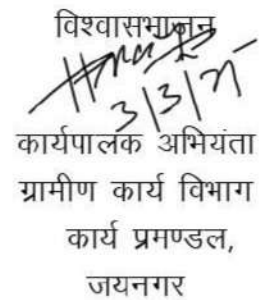 विश्वासभाजन
3/3/21
कार्यपालक अभियंता
ग्रामीण कार्य विभाग
कार्य प्रमण्डल,
जयनगर